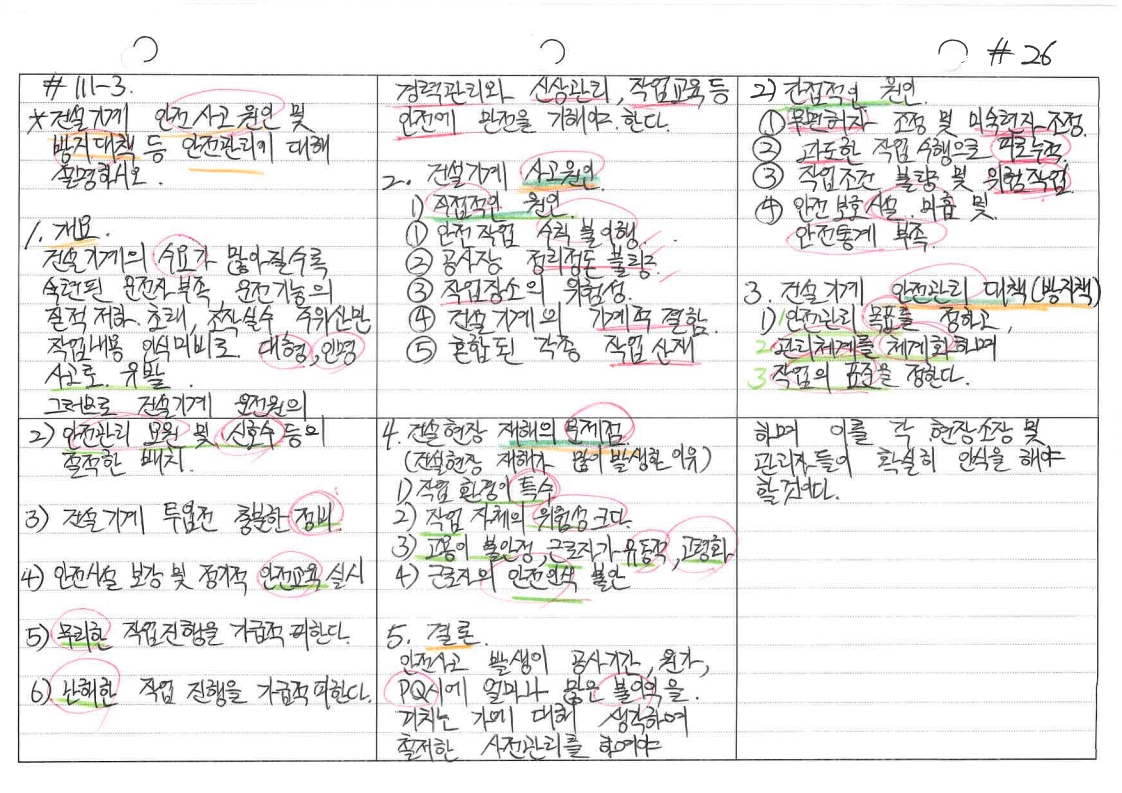 # 26
# 111-3.
* 건설기계 안전사고 원인 및
방지대책 등 안전관리에 대해
설명하시오.
1. 개요.
건설기계의 수요가 많아질수록
숙련된 운전자부족, 운전기능의
질적저하 초래, 조작실수, 주위산만
작업내용 인식미비로 대형, 인명
사고로 유발.
그러므로 건설기계 운전원의
경력관리와 신상관리, 작업교육등
안전에 만전을 기해야 한다.
2. 건설기계 사고원인
1) 직접적인 원인.
① 안전작업 수칙 불이행.
② 공사장 정리정돈 불량.
③ 작업장소의 위험성.
④ 건설기계의 기계적 결함.
⑤ 혼합된 각종 작업 산재
2) 간접적인 원인.
① 무면허자 조정 및 미숙련자 조정.
② 과도한 작업 수행으로 피로누적.
③ 작업조건 불량 및 위험작업
④ 안전보호시설 미흡 및
안전통계 부족.
3. 건설기계 안전관리 대책(방지책)
1) 1 안전관리 목표를 정하고,
2 관리체계를 체계화하며
3 작업의 표준을 정한다.
2) 안전관리 요원 및 신호수 등의
적적한 배치.
3) 건설기계 투입전 충분한 정비.
4) 안전시설 보강 및 정기적 안전교육 실시
5) 무리한 작업진행을 가급적 피한다.
6) 난해한 작업 진행을 가급적 피한다.
4. 건설현장 재해의 문제점
(건설현장 재해가 많이 발생한 이유)
1) 작업 환경이 특수
2) 작업 자체의 위험성 크다.
3) 고용이 불안정, 근로자가 유동적, 고령화
4) 근로자의 안전의식 불안
5. 결론.
안전사고 발생이 공사기간, 원가,
PQ시에 얼마나 많은 불이익을.
미치는 가에 대해 생각하여
철저한 사전관리를 하여야
하며 이를 각 현장소장 및
관리자들이 확실히 인식을 해야
할것이다.